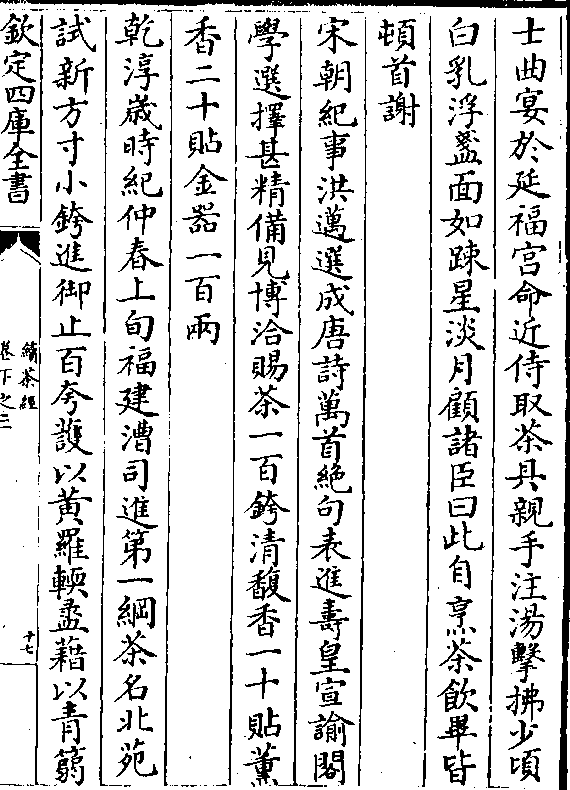 士曲宴於延福宮命近侍取茶具親手注湯擊拂少頃
白乳浮盞面如踈星淡月顧諸臣曰此自烹茶飲畢皆
頓首謝
宋朝紀事洪邁選成唐詩萬首絶句表進壽皇宣諭閣
學選擇甚精備見博洽賜茶一百銙清馥香一十貼薰
香二十貼金器一百兩
乾淳歲時紀仲春上旬福建漕司進第一綱茶名北苑
試新方寸小銙進御止百夸護以黄羅軟盝藉以青篛
欽定四庫全書
續茶經
卷下之三
十七